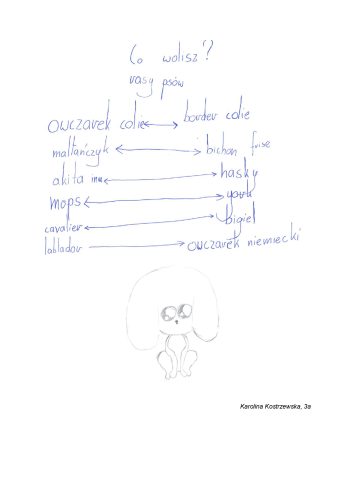 Co wolisz?
rasy psów
owczarek colie border colie
maltańczyk bichon frise
akita inu hasky
mops york
cavalier bigiel
labladov owczarek niemiecki
Karolina Kostrzewska, 3a